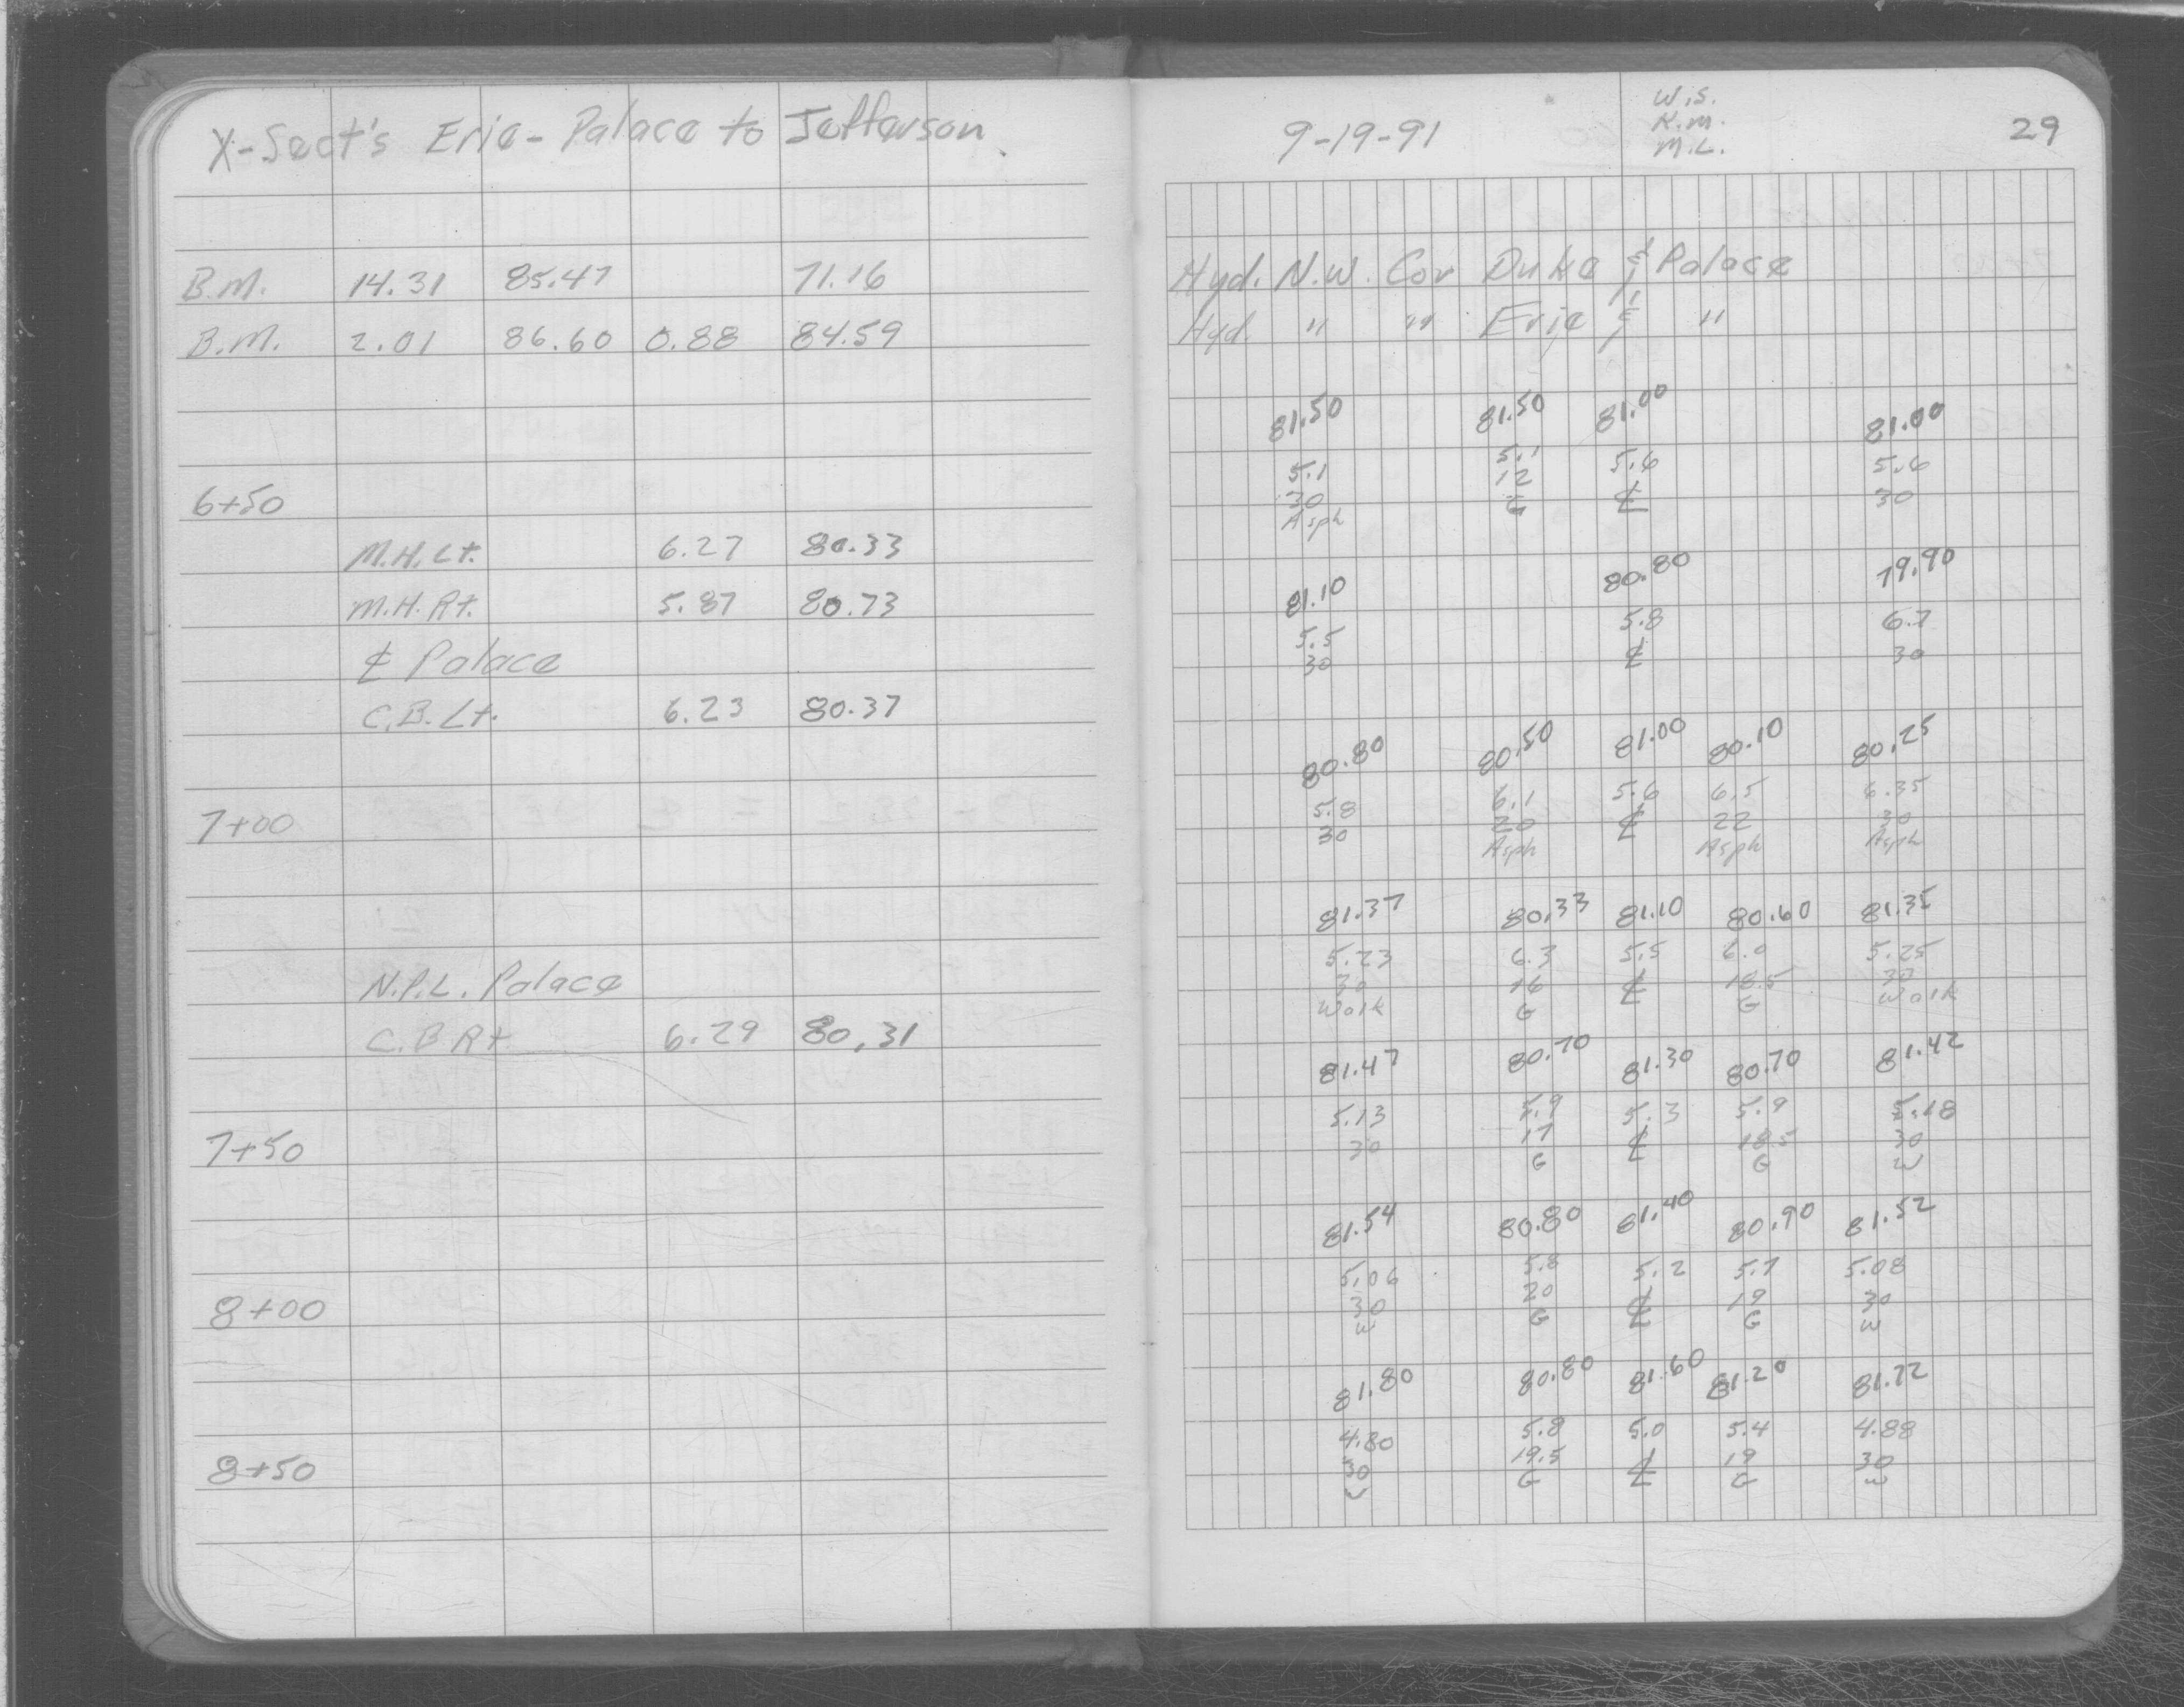 X-Sect's Erie - Palace to Jefferson
B.M. 14.31 85.47 71.16
B.M. 2.01 86.60 0.88 84.59
6+50
M.H. Lt. 6.27 80.33
M.H. Rt. 5.87 80.73
℄ Palace
C.B. Lt. 6.23 80.37
7+00
N.P.L. Palace
C.B Rt. 6.29 80.31
7+50
8+00
8+50
9-19-91
W.S.
K.M.
M.L.
29
Hyd. N.W. Cor Duke & Palace
Hyd. " " Erie & "
81.50 81.50 81.00 81.00
5.1 5.1 5.6 5.6
30 12 ℄ 30
Asph G
81.10 80.80 79.90
5.5 5.8 6.7
30 ℄ 30
80.80 80.50 81.00 80.10 80.25
5.8 6.1 5.6 6.5 6.35
30 20 ℄ 22 30
Asph Asph Asph
81.37 80.33 81.10 80.60 81.35
5.23 6.3 5.5 6.0 5.25
30 16 ℄ 18.5 30
Walk G G Walk
81.47 80.70 81.30 80.70 81.42
5.13 5.9 5.3 5.9 5.18
30 17 ℄ 18.5 30
G G W
81.54 80.80 81.40 80.90 81.52
5.06 5.8 5.2 5.7 5.08
30 20 ℄ 19 30
W G G W
81.80 80.80 81.60 81.20 81.72
4.80 5.8 5.0 5.4 4.88
30 19.5 ℄ 19 30
W G G W